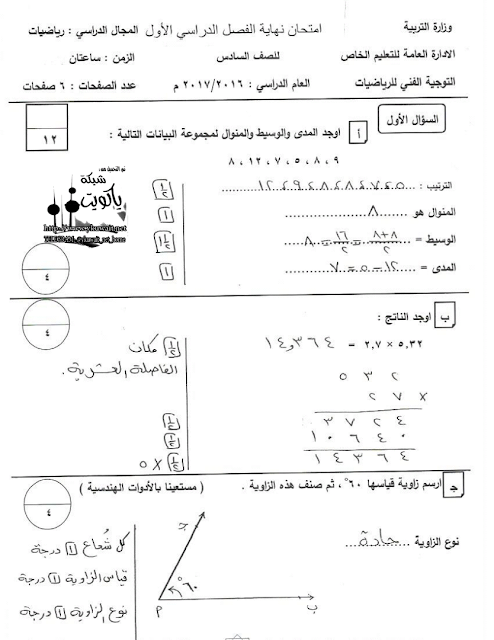 وزارة التربية
الادارة العامة للتعليم الخاص
التوجية الفني للرياضيات
امتحان نهاية الفصل الدراسي الأول
للصف السادس
العام الدراسي : ٢٠١٧/٢٠١٦ م
المجال الدراسي : رياضيات
الزمن : ساعتان
عدد الصفحات : ٦ صفحات
السؤال الأول
١٢
أ اوجد المدى والوسيط والمنوال لمجموعة البيانات التالية :
٨ ، ١٢ ، ٧ ، ٥ ، ٨ ، ٩
الترتيب : ٥ ، ٧ ، ٨ ، ٨ ، ٩ ، ١٢ ½
المنوال هو ٨ ١
الوسيط = ٨+٨/٢ = ١٦/٢ = ٨ ١½
المدى = ١٢ - ٥ = ٧ ١
تم التحميل من:
شبكة
ياكويت
٤
ب اوجد الناتج :
٤
٥,٣٢ × ٢,٧ = ١٤,٣٦٤
½ مكان
الفاصلة العشرية.
٥ ٣ ٢
٢ ٧ ×
٣ ٧ ٢ ٤ ½
١ ٠ ٦ ٤ ٠ ½
١ ٤ ٣ ٦ ٤ ½ × ٥
ج ارسم زاوية قياسها ٦٠° ، ثم صنف هذه الزاوية . ( مستعينا بالأدوات الهندسية )
٤
نوع الزاوية حادة
كل شعاع ١ درجة
قياس الزاوية ١ درجة
نوع الزاوية ١ درجة
ج
٦٠°
م
ب